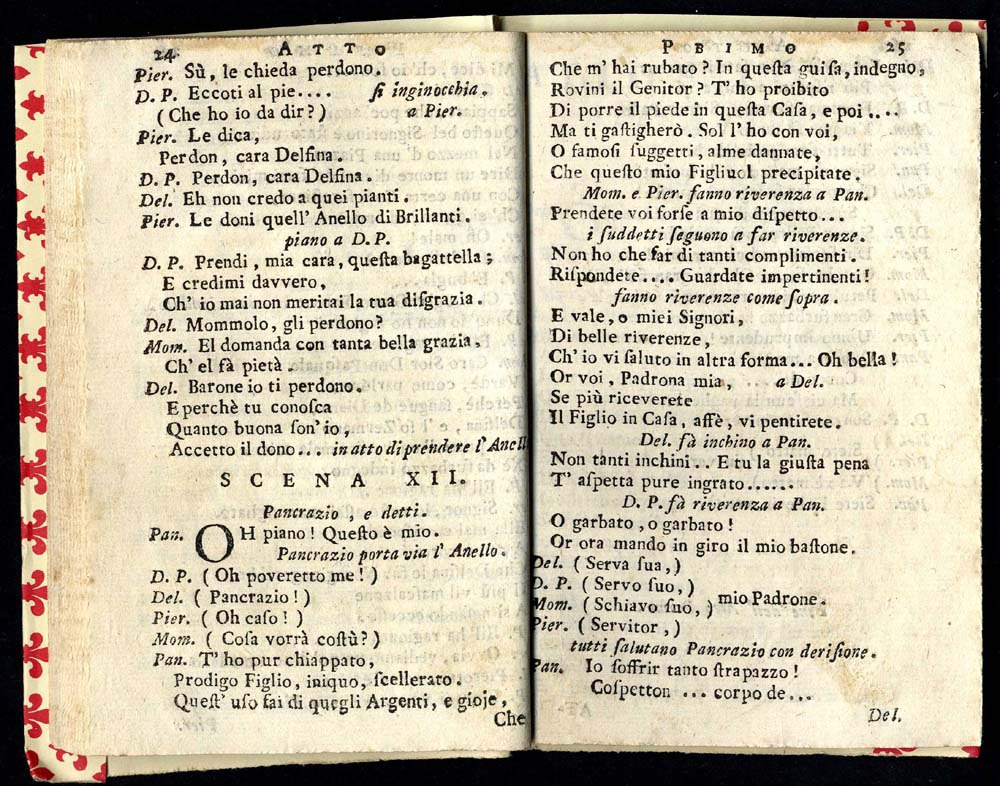 24 ATTO
Pier. Sù, le chieda perdono.
D. P. Eccoti al pie.... ſi inginocchia.
(Che ho io da dir?) a Pier.
Pier. Le dica,
Perdon, cara Delfina.
D. P. Perdon, cara Delfina.
Del. Eh non credo a quei pianti.
Pier. Le doni quell' Anello di Brillanti.
piano a D. P.
D. P. Prendi, mia cara, queſta bagattella;
E credimi davvero,
Ch' io mai non meritai la tua diſgrazia.
Del. Mommolo, gli perdono?
Mom. El domanda con tanta bella grazia.
Ch' el fà pietà.
Del. Barone io ti perdono.
E perchè tu conoſca
Quanto buona ſon' io,
Accetto il dono... in atto di prendere l' Anell
SCENA XII.
Pancrazio, e detti.
Pan. OH piano! Queſto è mio.
Pancrazio porta via l' Anello.
D. P. (Oh poveretto me!)
Del. (Pancrazio!)
Pier. (Oh caſo!)
Mom. (Coſa vorrà coſtù?)
Pan. T' ho pur chiappato,
Prodigo Figlio, iniquo, ſcellerato.
Queſt' uſo fai di quegli Argenti, e gioje,
Che
PBIMO 25
Che m' hai rubato? In queſta guiſa, indegno,
Rovini il Genitor? T' ho proibito
Di porre il piede in queſta Caſa, e poi....
Ma ti gaſtigherò. Sol l' ho con voi,
O famoſi ſuggetti, alme dannate,
Che queſto mio Figliuol precipitate.
Mom. e Pier. fanno riverenza a Pan.
Prendete voi forſe a mio diſpetto...
i ſuddetti ſeguono a far riverenze.
Non ho che far di tanti complimenti.
Riſpondete.... Guardate impertinenti!
fanno riverenze come ſopra.
E vale, o miei Signori,
Di belle riverenze,
Ch' io vi ſaluto in altra forma... Oh bella!
Or voi, Padrona mia, a Del.
Se più riceverete
Il Figlio in Caſa, affè, vi pentirete.
Del. fà inchino a Pan.
Non tanti inchini.. E tu la giuſta pena
T' aſpetta pure ingrato......
D. P. fà riverenza a Pan.
O garbato, o garbato!
Or ora mando in giro il mio baſtone.
Del. (Serva ſua,)
D. P. (Servo ſuo,)
Mom. (Schiavo ſuo,) mio Padrone.
Pier. (Servitor,)
tutti ſalutano Pancrazio con deriſione.
Pan. Io ſoffrir tanto ſtrapazzo!
Coſpetton ... corpo de...
Del.